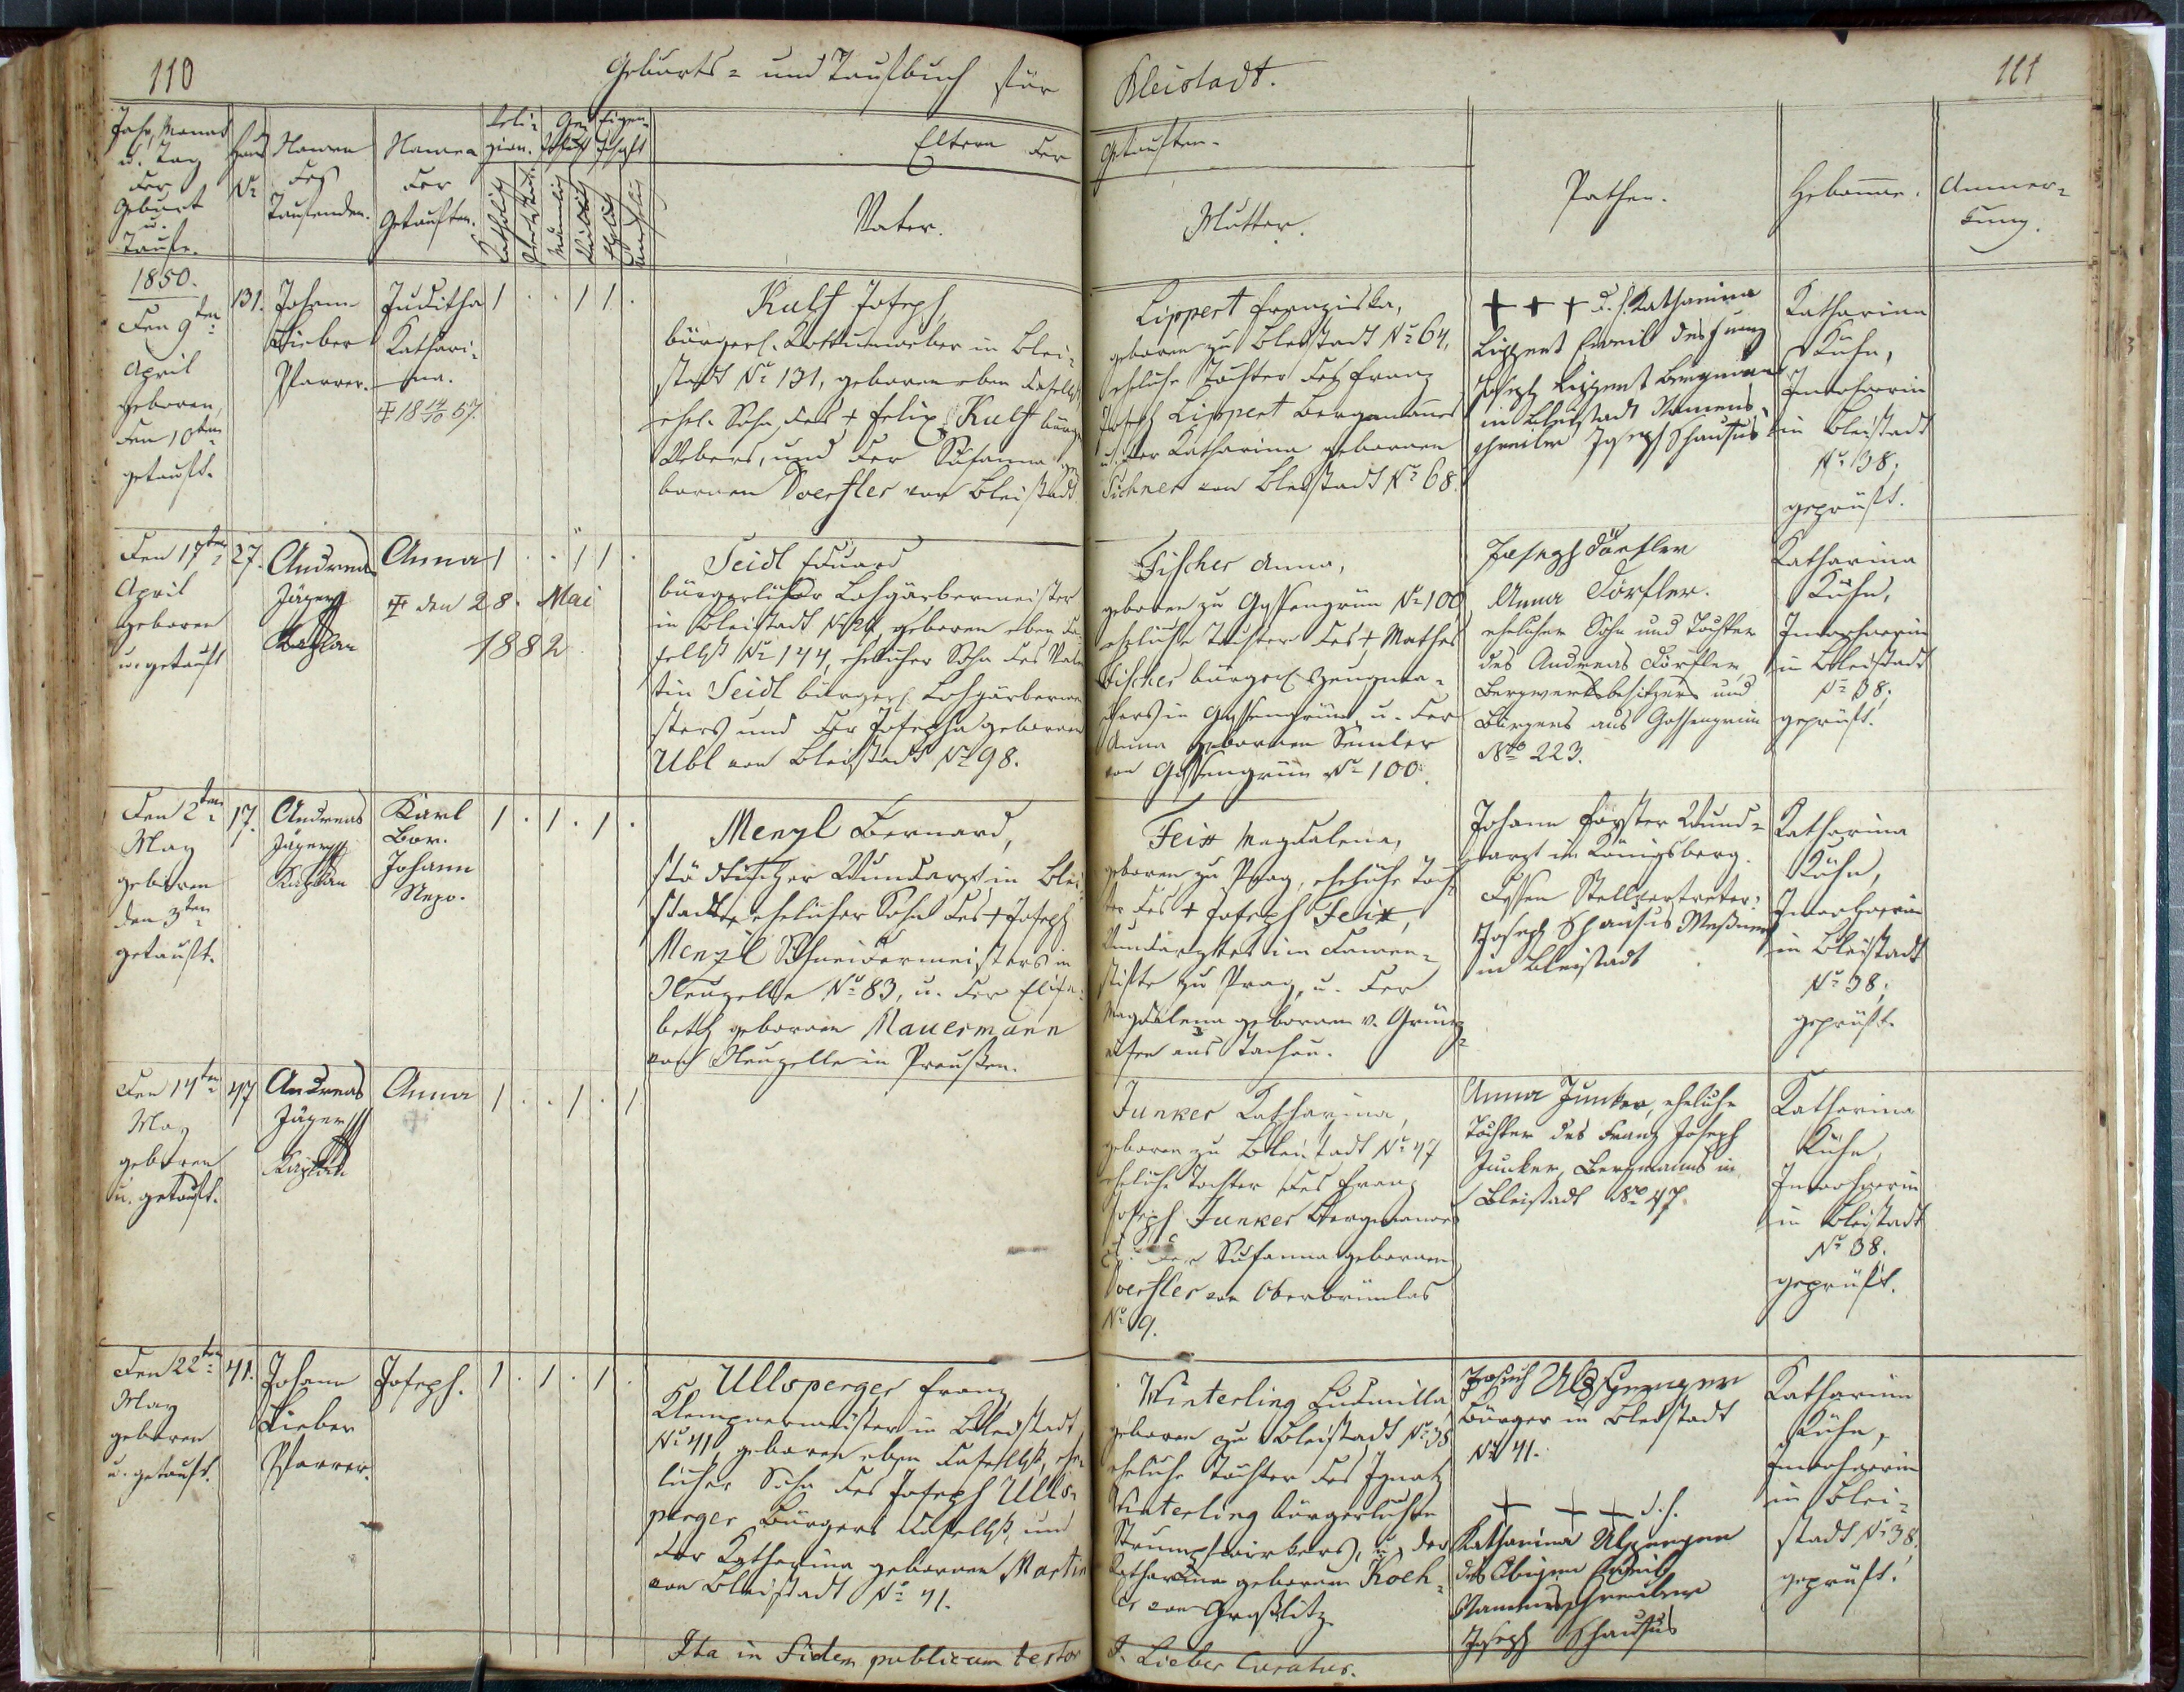 110
Geburts- und Taufbuch für
Bleistadt.
111
Jahr, Monat
u. Tag
der
Geburt
u.
Taufe.
Haus
Nr.
Namen
des
Taufenden.
Namen
der
Getauften.
Reli-
gion.
Katholisch
Ge-
schlecht
Männlich
Weiblich
Eigen-
schaft
Ehelich
Unehelich
Eltern der
Getauften.
Vater.
Mutter.
Pathen.
Hebamme.
Anmer-
kung.
1850.
Den 9ten
April
geboren,
den 10ten
getauft.
131.
Johann
Lieber
Pfarrer.
Juditha
Kathari-
na.
1 . . 1 1 .
Kulf Joseph,
bürgerl. in Blei-
stadt Nr 131, geboren eben daselbst,
ehel. Sohn des + Felix Kulf bürg.
Webers, und der Susanna ge-
bornen Doerfler von Bleistadt
Lippert Franziska,
geboren zu Bleistadt Nr 64,
eheliche Tochter des Franz
Joseph Lippert Bergmannes
u. der Katharina gebornen
von Bleistadt Nr 68.
+ + + d. s. Katharina
Lippert Eheweib des Franz
Joseph Lippert Bergmann
in Bleistadt Namens-
schreiber Joseph
Katharina
Kühn,
Inwohnerin
in Bleistadt
Nr 38;
geprüft.
Den 17ten
April
geboren
u. getauft
27.
Andreas
Jäger
Kaplan
Anna
den 28. Mai
1882
1 . . 1 1 .
Seidl Eduard
bürgerlicher Lohgärbermeister
in Bleistadt Nr 27, geboren eben da-
selbst Nr 144, ehelicher Sohn des Valen-
tin Seidl bürgerl. Lohgärbermei-
sters und der Josepha gebornen
Ubl von Bleistadt Nr 98.
Fischer Anna,
geboren zu Gossengrün Nr 100
eheliche Tochter des + Mathes
Fischer bürgerl. Zeugma-
chers in Gossengrün u. der
Anna gebornen Semler
von Gossengrün Nr 100.
Joseph Dörfler
Anna Dörfler.
ehelicher Sohn und Tochter
des Andreas Dörfler,
Bergwerksbesitzers und
Bürgers aus Gossengrün
Nro 223.
Katharina
Kühn,
Inwohnerin
in Bleistadt
Nr 38;
geprüft.
Den 2ten
May
geboren
den 3ten
getauft.
17.
Andreas
Jäger
Kaplan
Karl
Bor.
Johann
Nepo.
1 . 1 . 1 .
Menzl Bernard,
städtischer Wundarzt in Blei-
stadt, ehelicher Sohn des + Joseph
Menzl Schneidermeisters in
Neuzelle Nr 83, u. der Elisa-
beth gebornen Mauermann
von Neuzelle in Preußen.
Feix Magdalena,
geboren zu Prag, eheliche Toch-
ter des + Joseph Feix,
Wundarztes im Damen-
stifte zu Prag, u. der
Magdalena gebornen v.
aus Tachau.
Johann Forster Wund-
arzt in Königsberg.
Dessen Stellvertreter:
Joseph Meßner
in Bleistadt
Katharina
Kühn,
Inwohnerin
in Bleistadt
Nr 38;
geprüft.
Den 14ten
May
geboren
u. getauft.
47
Andreas
Jäger
Kaplan
Anna
1 . . 1 . 1
Junker Katharina,
geboren zu Bleistadt Nr 47
eheliche Tochter des Franz
Joseph Junker Bergmannes
u. der Susanna gebornen
Doerfler von Oberbrünlas
Nr 9.
Anna Junker, eheliche
Tochter des Franz Joseph
Junker, Bergmanns in
Bleistadt Nro 47.
Katharina
Kühn,
Inwohnerin
in Bleistadt
Nr 38.
geprüft.
Den 22ten
May
geboren
u. getauft.
41.
Johann
Lieber
Pfarrer.
Joseph.
1 . 1 . 1 .
Ullsperger Franz
Klempnermeister in Bleistadt
Nr 41, geboren eben daselbst, ehe-
licher Sohn des Joseph Ulls-
perger Bürgers daselbst, und
der Katharina gebornen Martin
von Bleistadt Nr 41.
Winterling Ludmilla
geboren zu Bleistadt Nr 38
eheliche Tochter des Ignatz
Winterling bürgerlichen
Strumpfwirkers, u. der
Katharina gebornen Koch-
er von Graßlitz
Joseph Ulsperger
Bürger in Bleistadt
Nr 41.
+ + + d. s.
Katharina Ulsperger
des Obigen Eheweib
Namensschreiber
Joseph
Katharina
Kühn,
Inwohnerin
in Blei-
stadt Nr 38,
geprüft.
Ita in fidem publicam testor
J. Lieber Curatus.